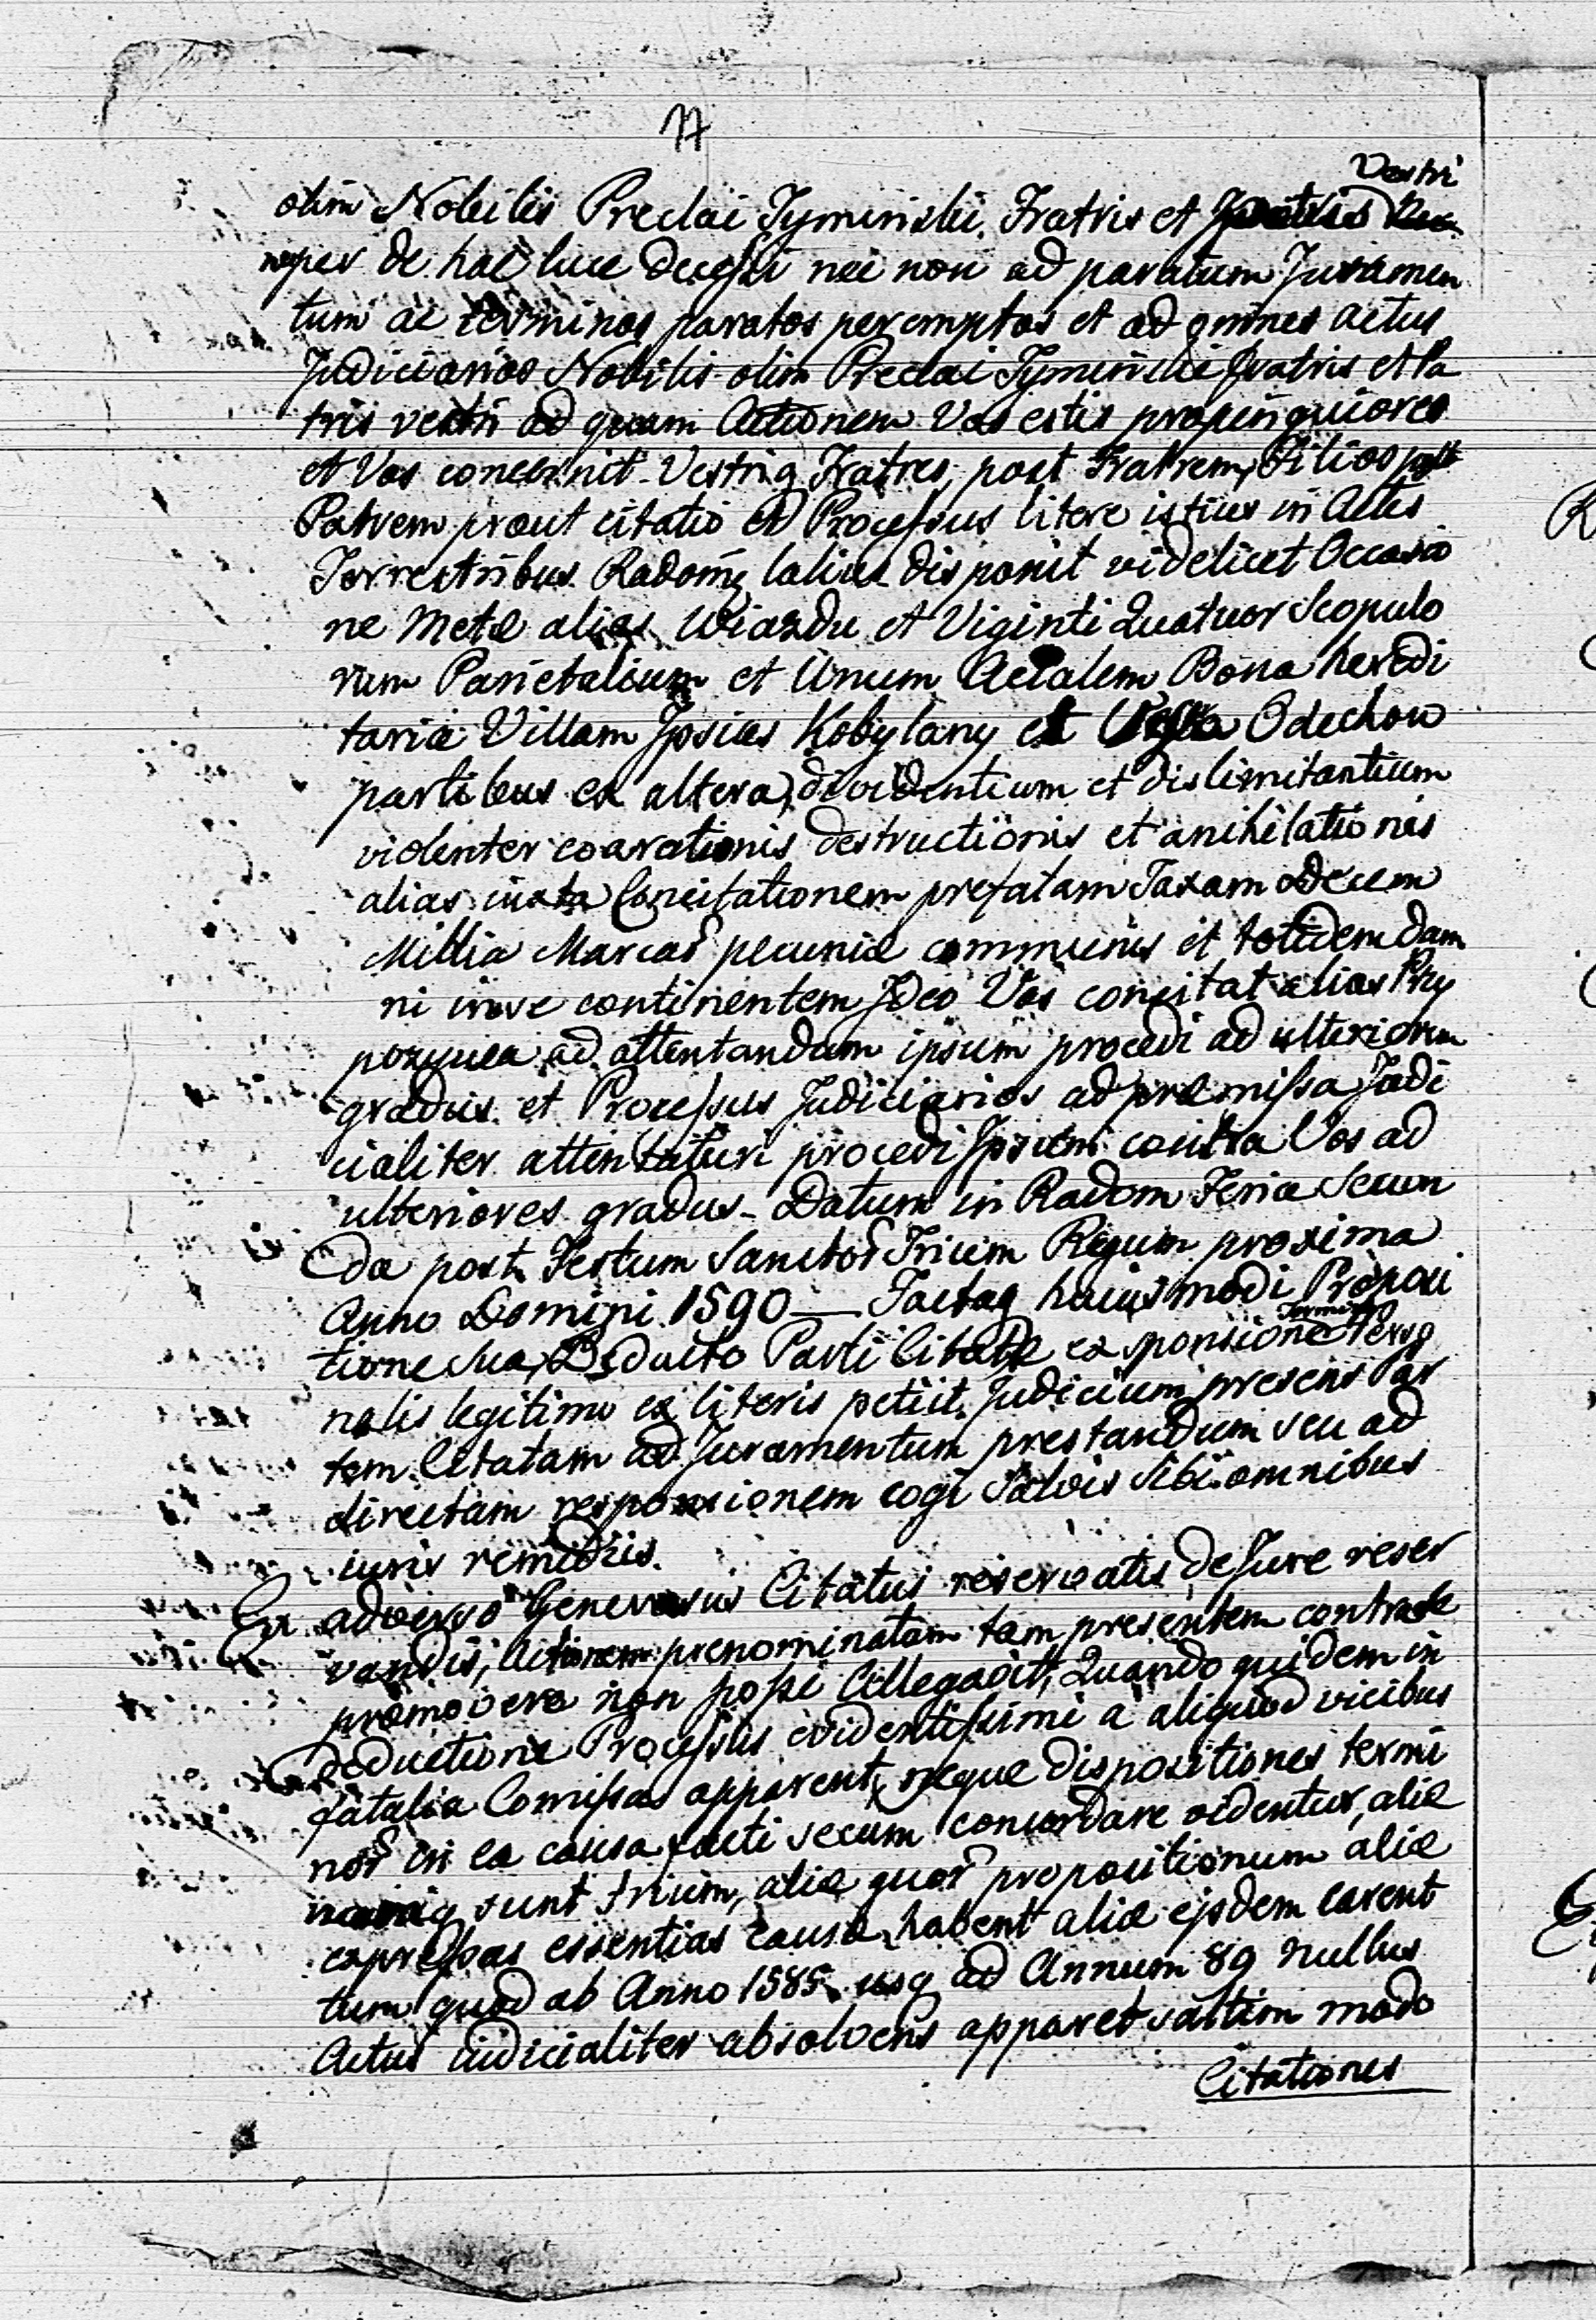 77
Vestri
olim Nobilis Preclai Tyminski, Fratris et
nuper de hac luce decessi nec non ad paratum Juramen
tum ac terminos paratos peremptos et ad omnes actus
Judiciarios Nobilis olim Preclai Tyminski Fratris et Pa
tris vestri ad quam Actionem Vos estis propinquiores
et Vos concernit Vestriq Fratres, post Fratrem, Filios post
Patrem prout citatio et Processus litere istius in Actis
Terrestribus Radomę latius disponit videlicet Occasio
ne Metæ alias Wiazdu et Viginti Quatuor Scopulo
rum Parietalium et Unum Acialem Bona heredi
taria Villam Ipsius Kobylany et Odechow
partibus ex altera, dividentium et dislimitantium
violenter coarationis destructionis et anihilationis
alias iuxta Concitationem prefatam Taxam Decem
Millia Marcas pecuniæ communis et totidem dam
ni in se continentem Ideo Vos concitat alias Przy
pozywa ad attentandam ipsum procedi ad ulteriorum
gradus et Processus Judiciarios ad præmissa Judi
cialiter attentaturi procedi Ipsum contra Vos ad
ulteriores gradus - Datum in Radom Feria Secun
da post Festum Sanctor Trium Regum proxima
Anno Domini 1590 — Factaq huiusmodi Proposi
tione sua, Deducto Parti Citatæ ex sponsione Termino Perso
nalis legitimo ex literis petiit Judicium presens Par
tem Citatam ad Juramentum prestandum seu ad
directam responsionem cogi Salvis Sibi omnibus
iuris remidiis.
Ex adverso Generosus Citatus reservatis de Jure reser
vandis, Actionem prenominatam tam presentem contra se
promovere non posse Allegavit, Quando quidem in
deductione Processus evidentissimi a aliquod vicibus
fatalia Comissa apparent, neque dispositiones termi
nor in ea causa facti secum concordare videntur, aliæ
sunt trium, aliæ quor propositionum aliæ
expressas essentias causæ habent aliæ ejsdem carent
tum quod ab Anno 1585 usq ad Annum 89 nullus
Actus iudicialiter absolvens apparet saltim modo
Citationes